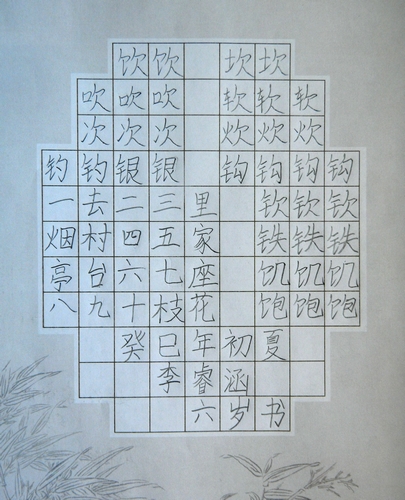 饮饮 坎坎
吹吹吹 软软软
次次次 炊炊炊
钓钓银银 钩钩钩钩
一去二三里 钦钦钦
烟村四五家 铁铁铁
亭台六七座 饥饥饥
八九十枝花 饱饱饱
癸巳年初夏
李睿涵
六岁书